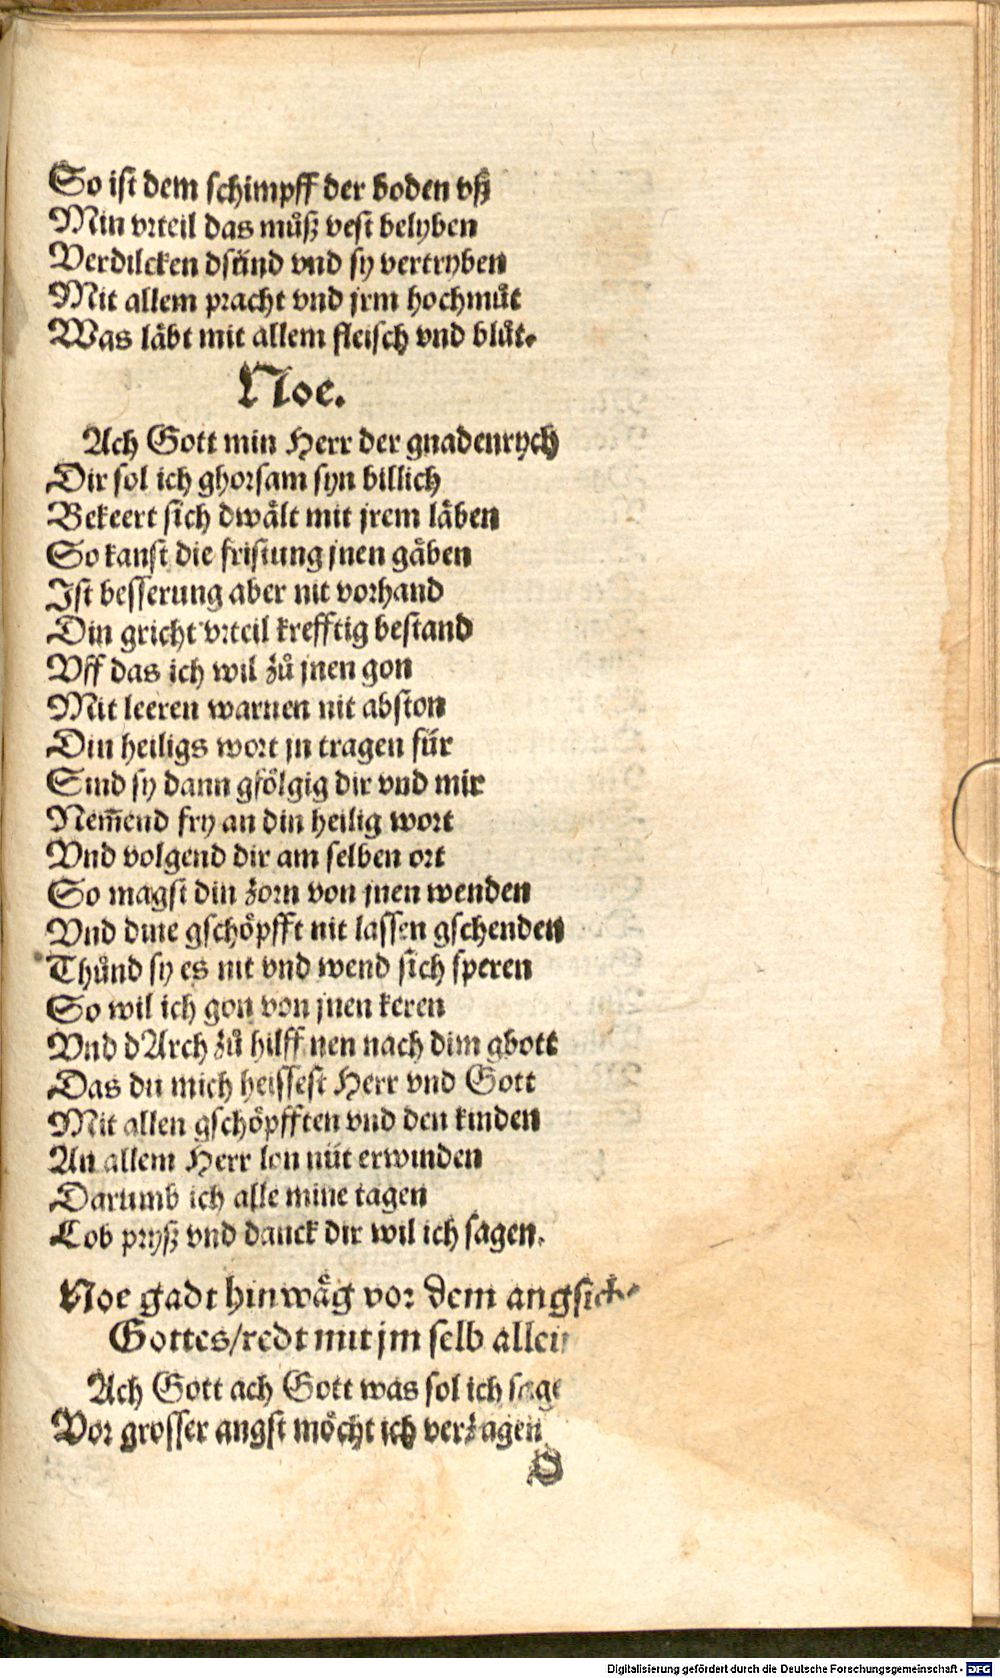 So ist dem schimpff der boden vß
Min vrteil das můß vest belyben
Verdilcken dsünd vnd sy vertryben
Mit allem pracht vnd jrm hochmůt
Was läbt mit allem fleisch vnd blůt.
Noe.
Ach Gott min Herr der gnadenrych
Dir sol ich ghorsam syn billich
Bekeert sich dwält mit jrem läben
So kanst die fristung jnen gäben
Ist besserung aber nit vorhand
Din gricht vrteil krefftig bestand
Vff das ich wil zů jnen gon
Mit leeren warnen nit abston
Din heiligs wort jn tragen für
Sind sy dann gfölgig dir vnd mir
Nem̄end fry an din heilig wort
Vnd volgend dir am selben ort
So magst din zorn von jnen wenden
Vnd dine gschöpfft nit lassen gschenden
Thůnd sy es nit vnd wend sich speren
So wil ich gon von jnen keren
Vnd dArch zů hilff nen nach dim gbott
Das du mich heissest Herr vnd Gott
Mit allen gschöpfften vnd den kinden
An allem Herr lon nüt erwinden
Darumb ich alle mine tagen
Lob pryß vnd danck dir wil ich sagen.
Noe gadt hinwäg vor dem angsicht
Gottes/redt mit jm selb allein
Ach Gott ach Gott was sol ich sage
Vor grosser angst möcht ich verzagen
S
Digitalisierung gefördert durch die Deutsche Forschungsgemeinschaft - DFG